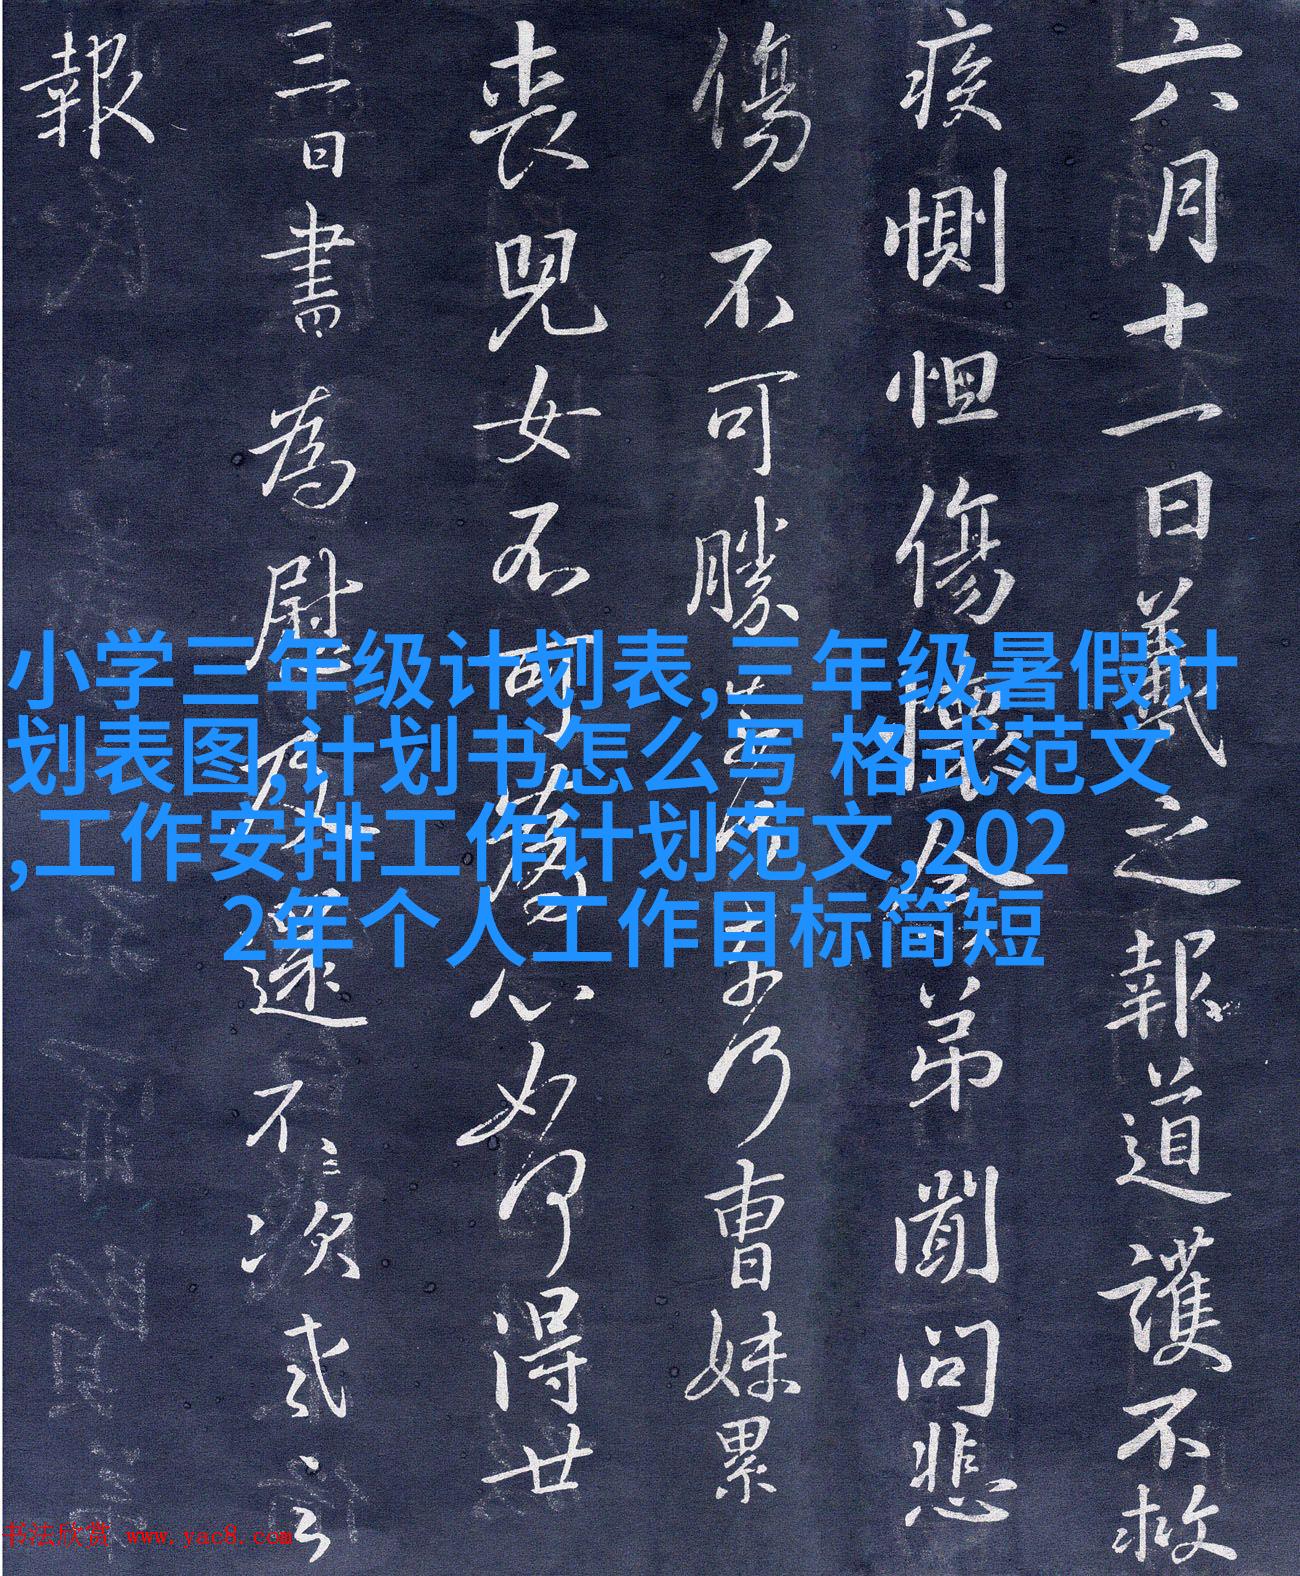 六月十一日羲之報道護不救
疾惻怛傷懷念弟聞問悲
傷不可勝乃曹妹累
喪兒女不可為心如何得廿
三日書為慰不次
報
小学三年级计划表,三年级暑假计
划表图,计划书怎么写 格式范文
,工作安排工作计划范文,202
2年个人工作目标简短
书法欣赏 www.yac8.com